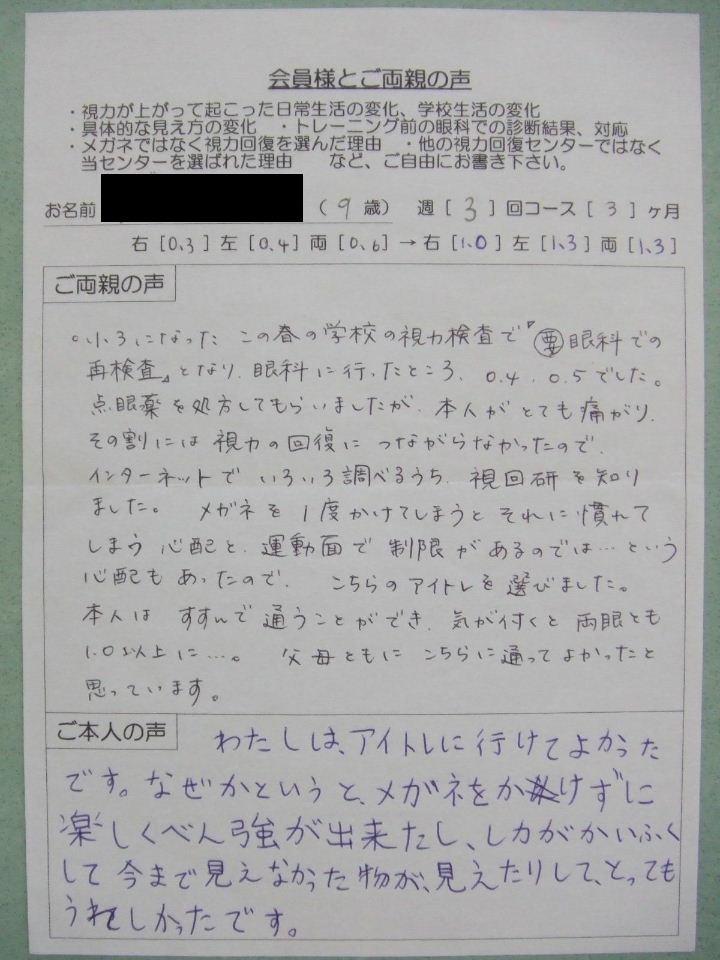 会員様とご両親の声
・視力が上がって起こった日常生活の変化、学校生活の変化
・具体的な見え方の変化 ・トレーニング前の眼科での診断結果、対応
・メガネではなく視力回復を選んだ理由 ・他の視力回復センターではなく
当センターを選ばれた理由 など、ご自由にお書き下さい。
お名前 (9歳) 週[3]回コース[3]ヶ月
右[0.3]左[0.4]両[0.6]→右[1.0]左[1.3]両[1.3]
ご両親の声
。小3になった この春の学校の視力検査で『要眼科での
再検査』となり、眼科に行ったところ、0.4、0.5でした。
点眼薬を処方してもらいましたが、本人がとても痛がり、
その割には視力の回復に つながらなかったので、
インターネットで いろいろ調べるうち、視回研を知り
ました。 メガネを1度かけてしまうと それに慣れて
しまう心配と、運動面で制限があるのでは…という
心配もあったので、 こちらのアイトレを選びました。
本人は すすんで通うことができ、気が付くと両眼とも
1.0以上に…。 父母ともに こちらに通ってよかったと
思っています。
ご本人の声
わたしは、アイトレに行けてよかった
です。なぜかというと、メガネをかけずに
楽しくべん強が出来たし、しカがかいふく
して今まで見えなかった物が、見えたりして、とっても
うれしかったです。